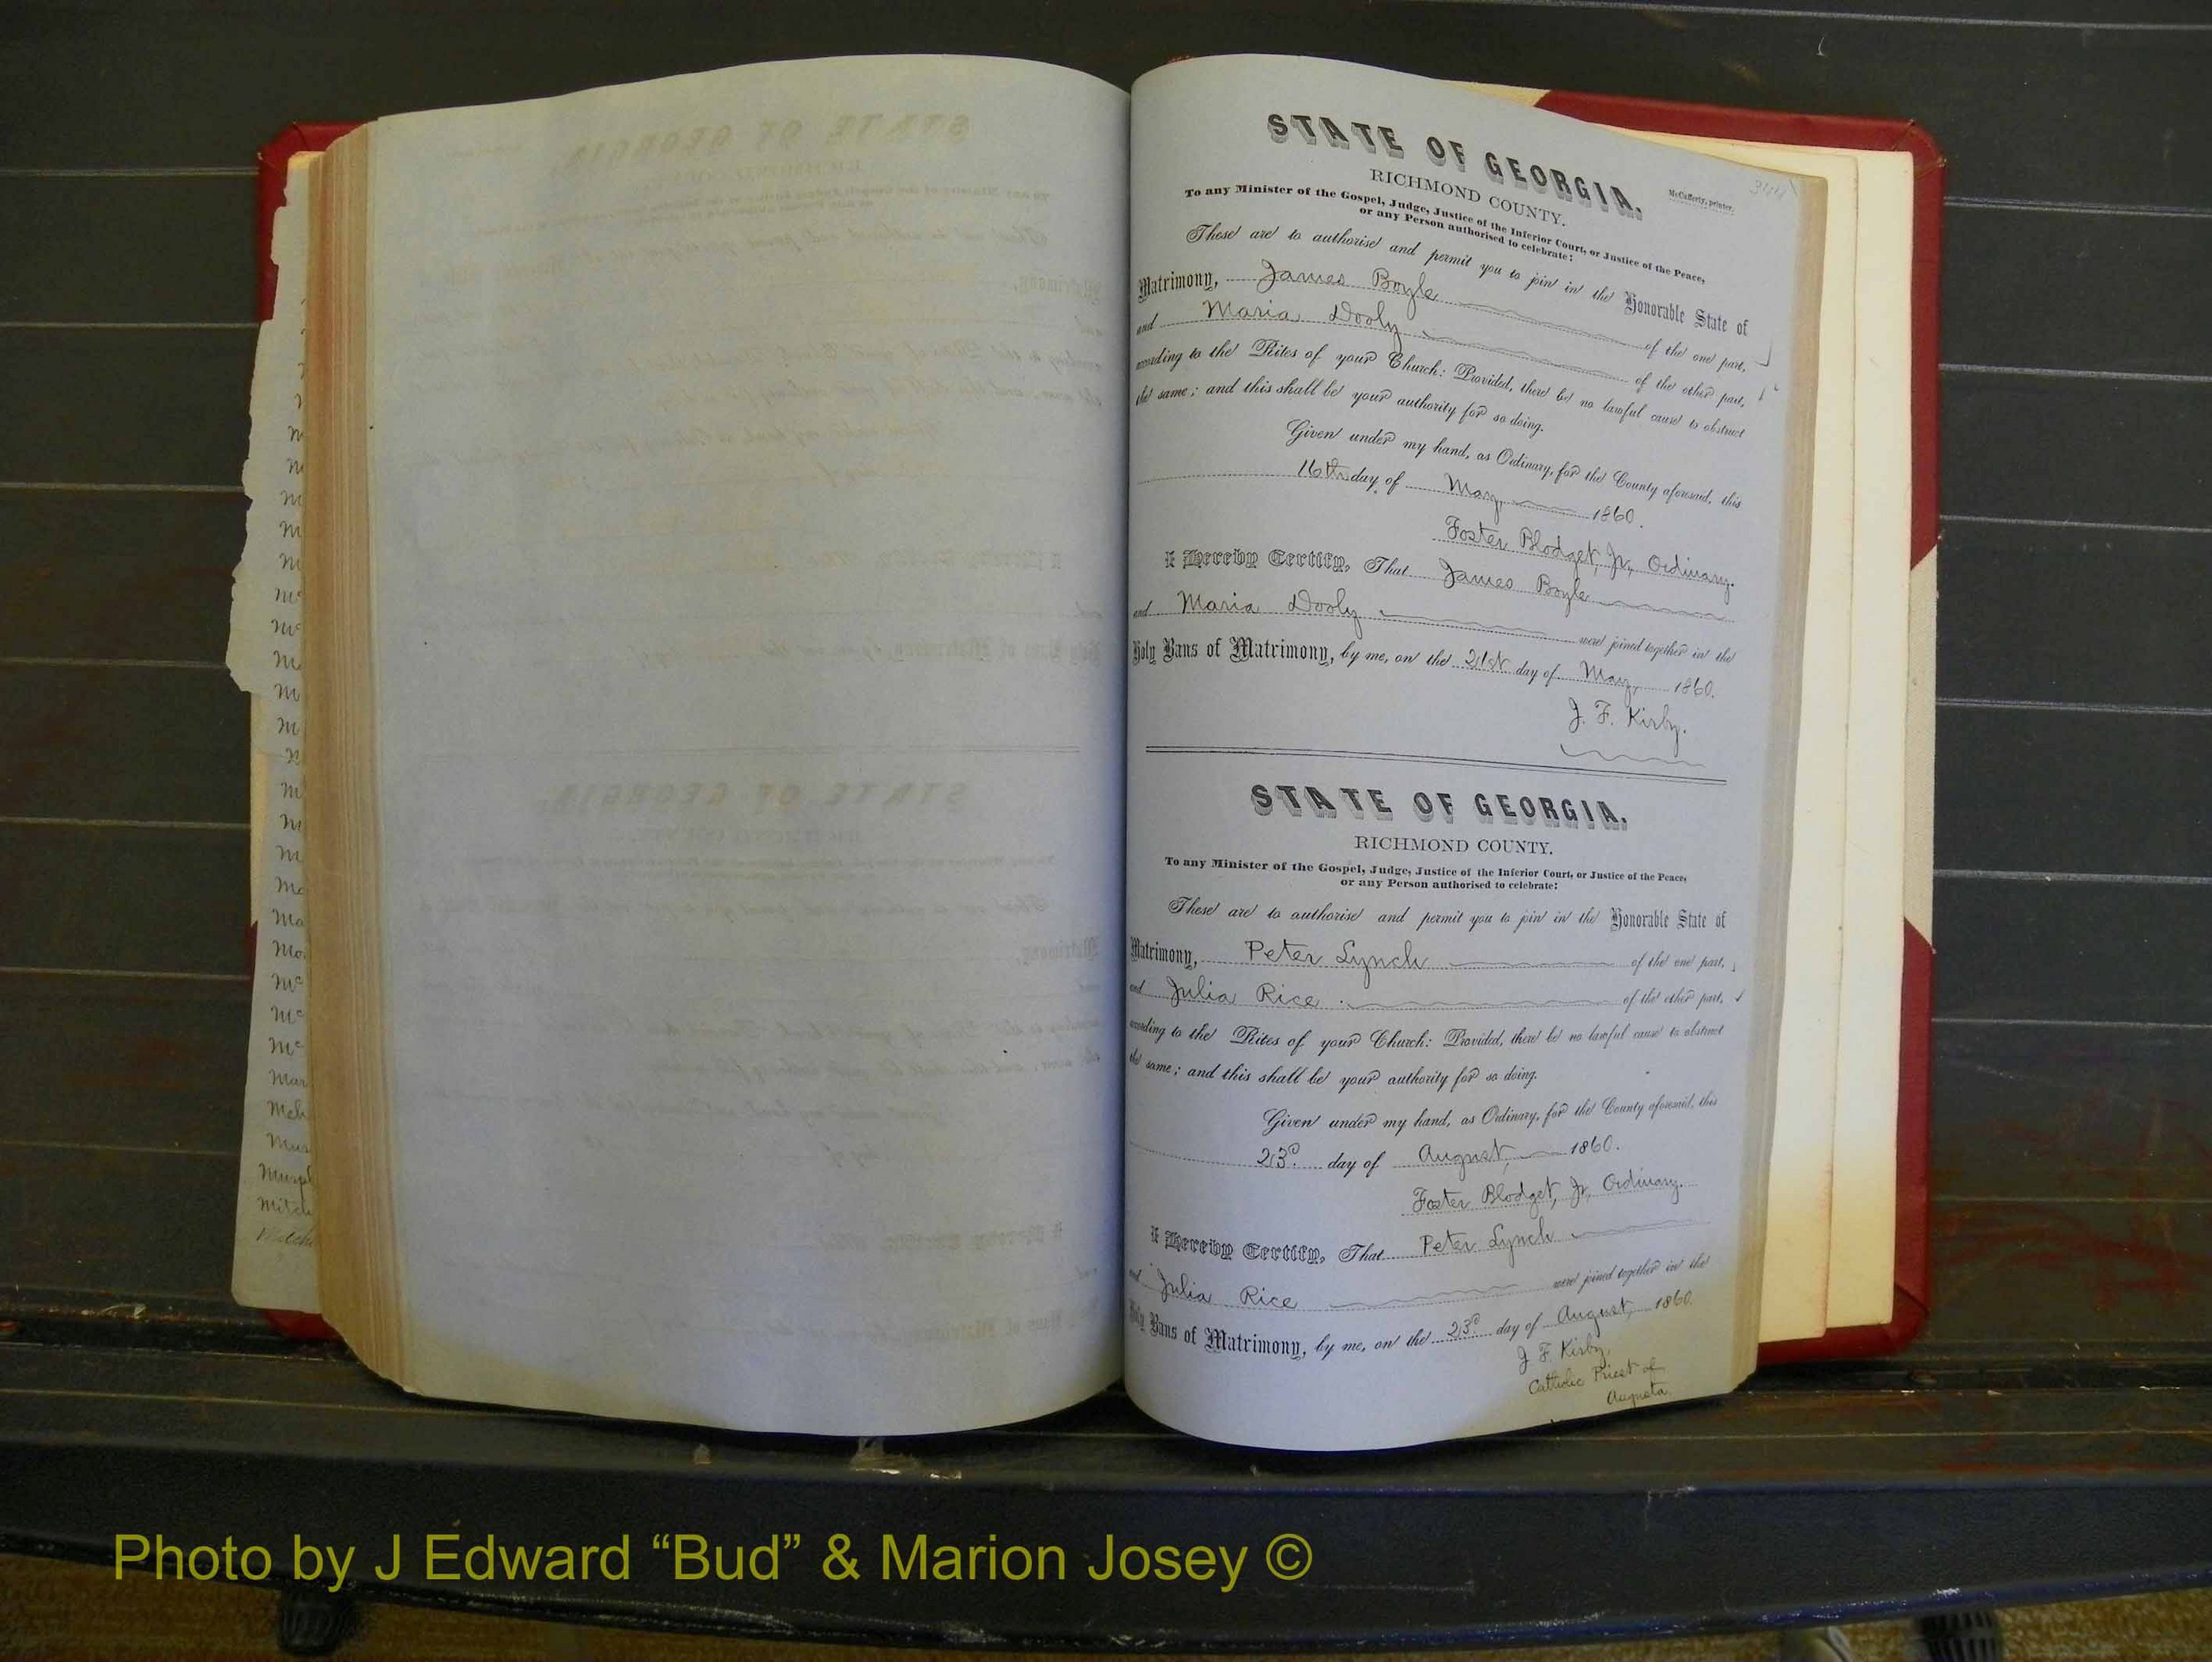 STATE OF GEORGIA.
McCafferty, printer.
344
RICHMOND COUNTY.
To any Minister of the Gospel, Judge, Justice of the Inferior Court, or Justice of the Peace,
or any Person authorised to celebrate:
These are to authorise and permit you to join in the Honorable State of
Matrimony, James Boyle of the one part,
and Maria Dooly of the other part,
according to the Rites of your Church: Provided, there be no lawful cause to obstruct
the same; and this shall be your authority for so doing.
Given under my hand, as Ordinary, for the County aforesaid, this
16th day of May 1860.
Foster Blodget, Jr, Ordinary.
I Hereby Certify, That James Boyle
and Maria Dooly were joined together in the
Holy Bans of Matrimony, by me, on the 21st day of May 1860.
J. F. Kirby.
STATE OF GEORGIA.
RICHMOND COUNTY.
To any Minister of the Gospel, Judge, Justice of the Inferior Court, or Justice of the Peace,
or any Person authorised to celebrate:
These are to authorise and permit you to join in the Honorable State of
Matrimony, Peter Lynch of the one part,
and Julia Rice of the other part,
according to the Rites of your Church: Provided, there be no lawful cause to obstruct
the same; and this shall be your authority for so doing.
Given under my hand, as Ordinary, for the County aforesaid, this
23d. day of August, 1860.
Foster Blodget, Jr, Ordinary.
I Hereby Certify, That Peter Lynch
and Julia Rice were joined together in the
Holy Bans of Matrimony, by me, on the 23d day of August, 1860.
J F. Kirby,
Catholic Priest of
Augusta.
Photo by J Edward “Bud” & Marion Josey ©